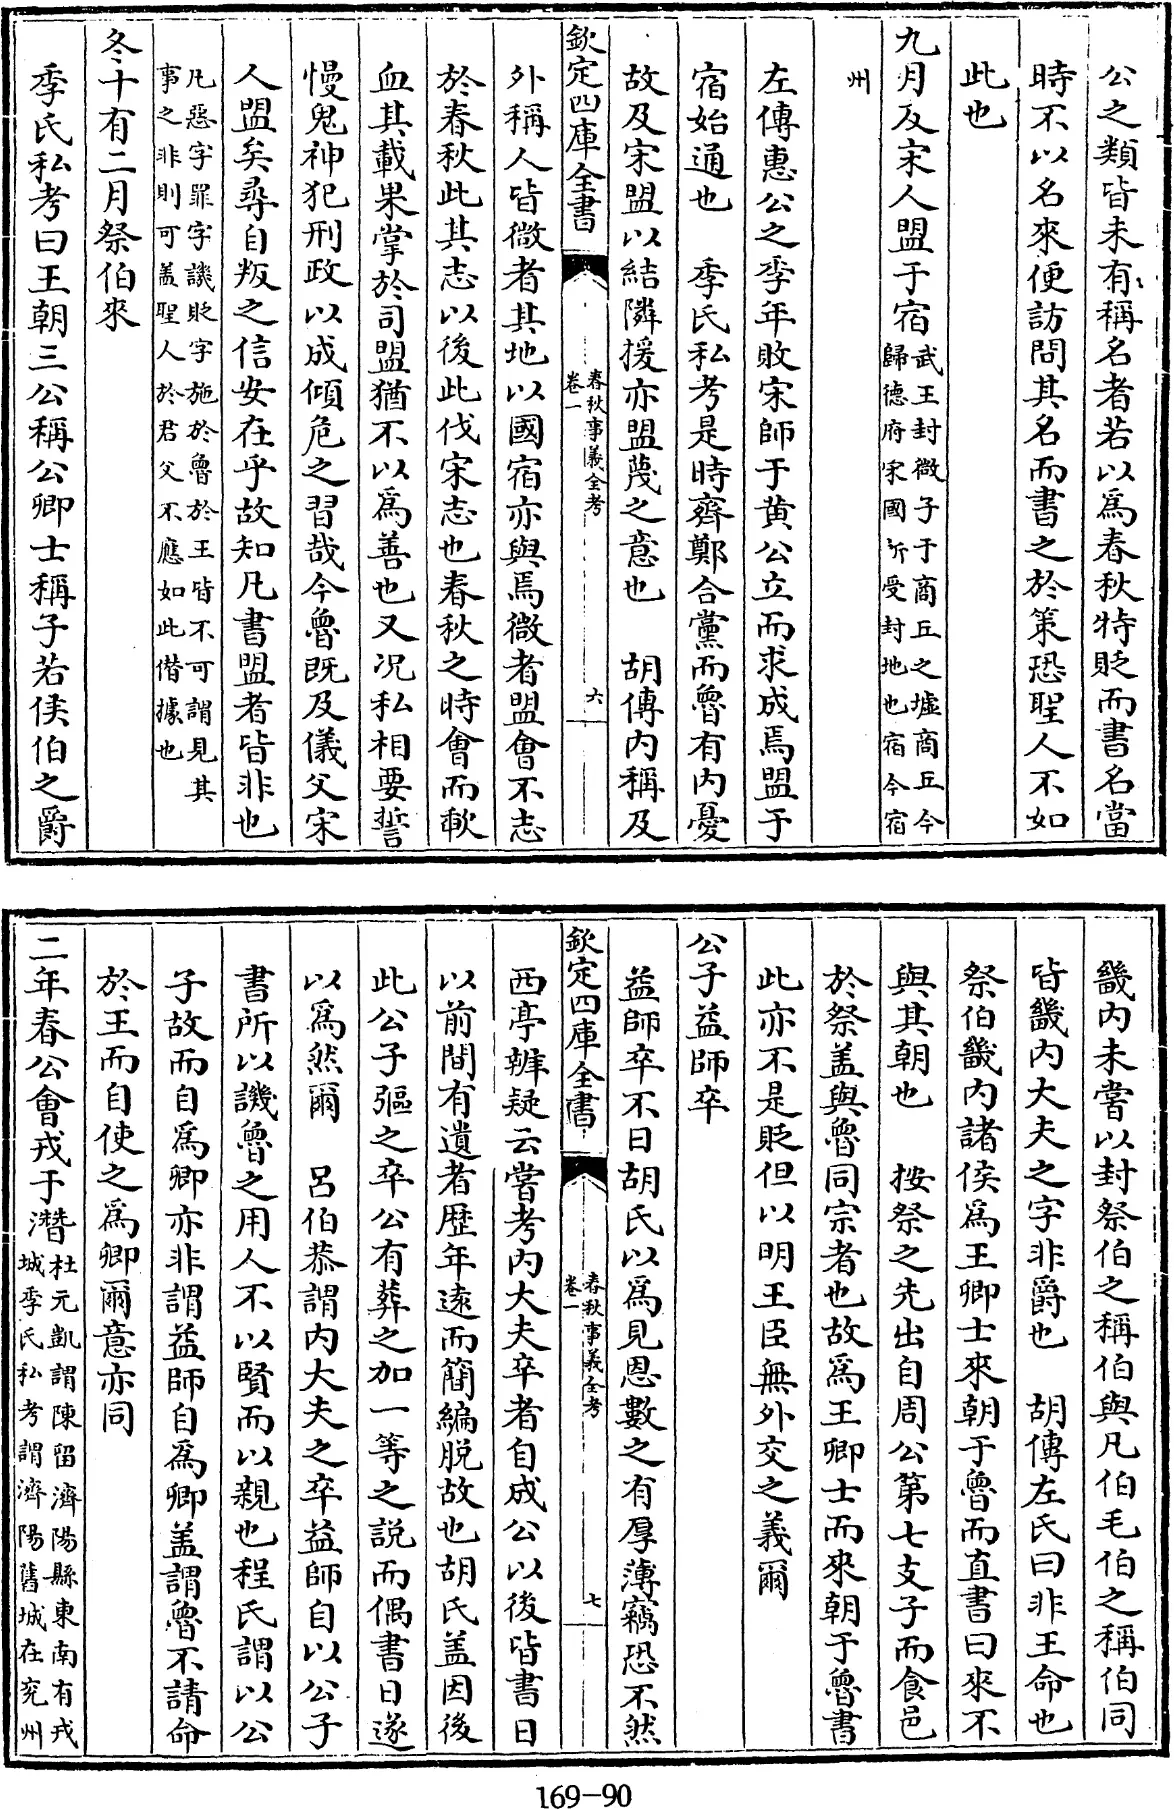 公之類皆未有稱名者若以為春秋特貶而書名當
時不以名來便訪問其名而書之於策恐聖人不如
此也
九月及宋人盟于宿武王封微子于商丘之墟商丘今
歸德府宋國所受封地也宿今宿
州
左傳惠公之季年敗宋師于黄公立而求成焉盟于
宿始通也　季氏私考是時齊鄭合黨而魯有内憂
故及宋盟以結隣援亦盟蔑之意也　胡傳内稱及
欽定四庫全書
春秋事義全考
卷一
六
外稱人皆微者其地以國宿亦與焉微者盟會不志
於春秋此其志以後此伐宋志也春秋之時會而歃
血其載果掌於司盟猶不以為善也又況私相要誓
慢鬼神犯刑政以成傾危之習哉今魯既及儀父宋
人盟矣尋自叛之信安在乎故知凡書盟者皆非也
凡惡字罪字譏貶字施於魯於王皆不可謂見其
事之非則可盖聖人於君父不應如此僣據也
冬十有二月祭伯來
季氏私考曰王朝三公稱公卿士稱子若侯伯之爵
畿内未嘗以封祭伯之稱伯與凡伯毛伯之稱伯同
皆畿内大夫之字非爵也　胡傳左氏曰非王命也
祭伯畿内諸侯為王卿士來朝于魯而直書曰來不
與其朝也　按祭之先出自周公第七支子而食邑
於祭盖與魯同宗者也故為王卿士而來朝于魯書
此亦不是貶但以明王臣無外交之義爾
公子益師卒
益師卒不日胡氏以為見恩數之有厚薄竊恐不然
欽定四庫全書
春秋事義全考
卷一
七
西亭辨疑云嘗考内大夫卒者自成公以後皆書日
以前間有遺者歴年逺而簡編脱故也胡氏盖因後
此公子彄之卒公有葬之加一等之說而偶書日遂
以為然爾　吕伯恭謂内大夫之卒益師自以公子
書所以譏魯之用人不以賢而以親也程氏謂以公
子故而自為卿亦非謂益師自為卿盖謂魯不請命
於王而自使之為卿爾意亦同
二年春公會戎于潛杜元凱謂陳留濟陽縣東南有戎
城季氏私考謂濟陽舊城在兖州
169-90